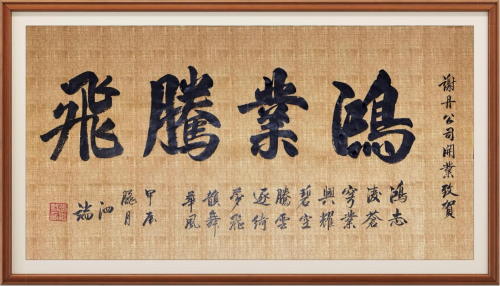 謝丹公司開業致賀
鴻業騰飛
鴻志
凌蒼
穹業
興耀
碧空
騰雲
逐綺
夢飛
韻舞
華風
甲辰
臘月
泗
端